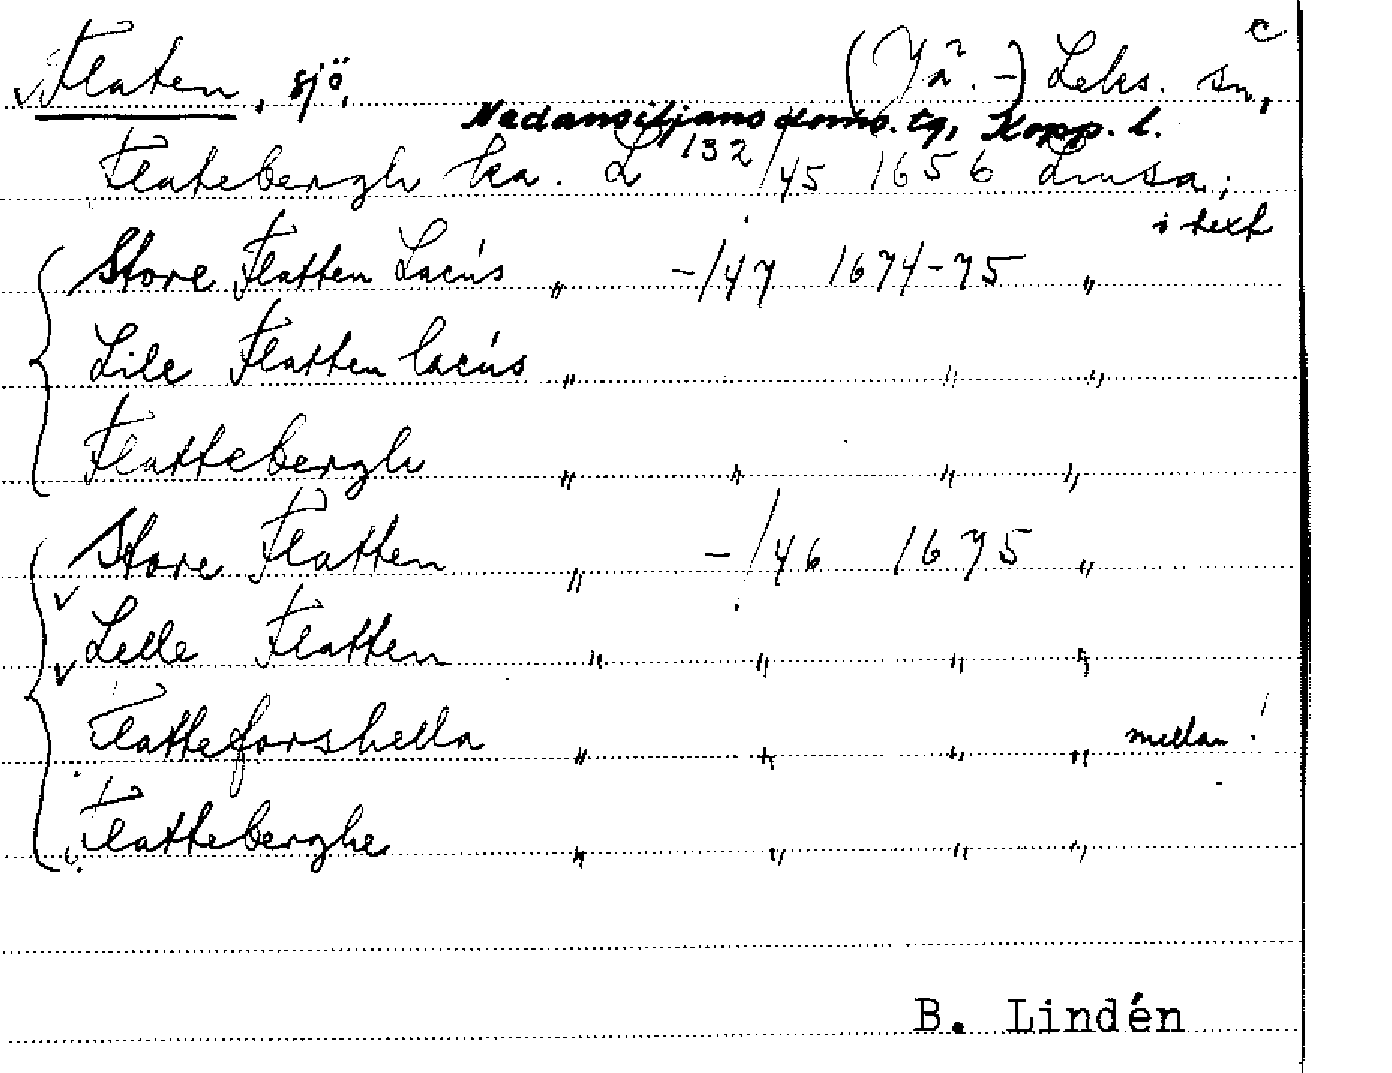 c
Flaten, sjö, (Jä. -) Leks. sn,
Nedansiljans doms. tg, Kopp. l.
Flatebergh ka. L 132/45 1656 Limsa;
i text
Store Flatten Lacús " -/47 1674-75 "
Lile Flatten lacús " " "
Flattebergh " " " "
Store Flatten " -/46 1675 "
Lelle Flatten " " " "
Flatteforshella " " " " mellan!
Flatteberghe " " " "
B. Lindén